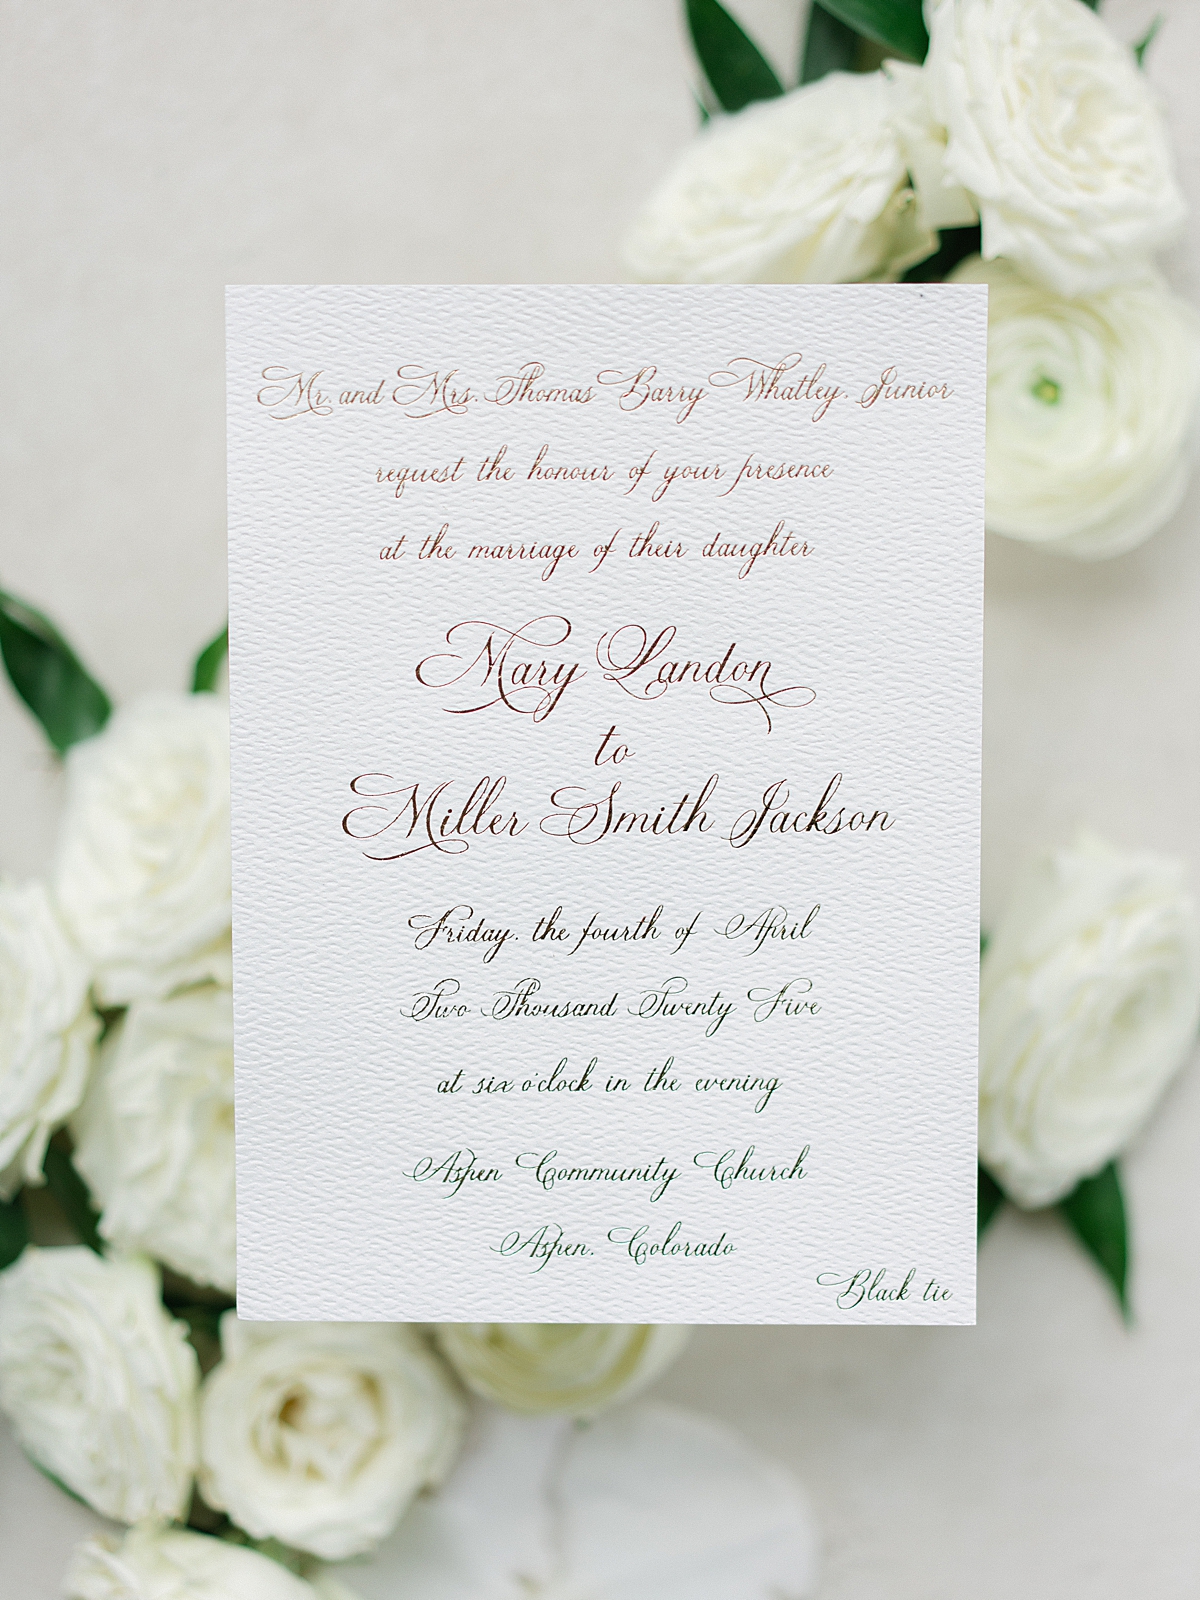 Mr. and Mrs. Thomas Barry Whatley, Junior
request the honour of your presence
at the marriage of their daughter
Mary Landon
to
Miller Smith Jackson
Friday, the fourth of April
Two Thousand Twenty Five
at six o'clock in the evening
Aspen Community Church
Aspen, Colorado
Black tie